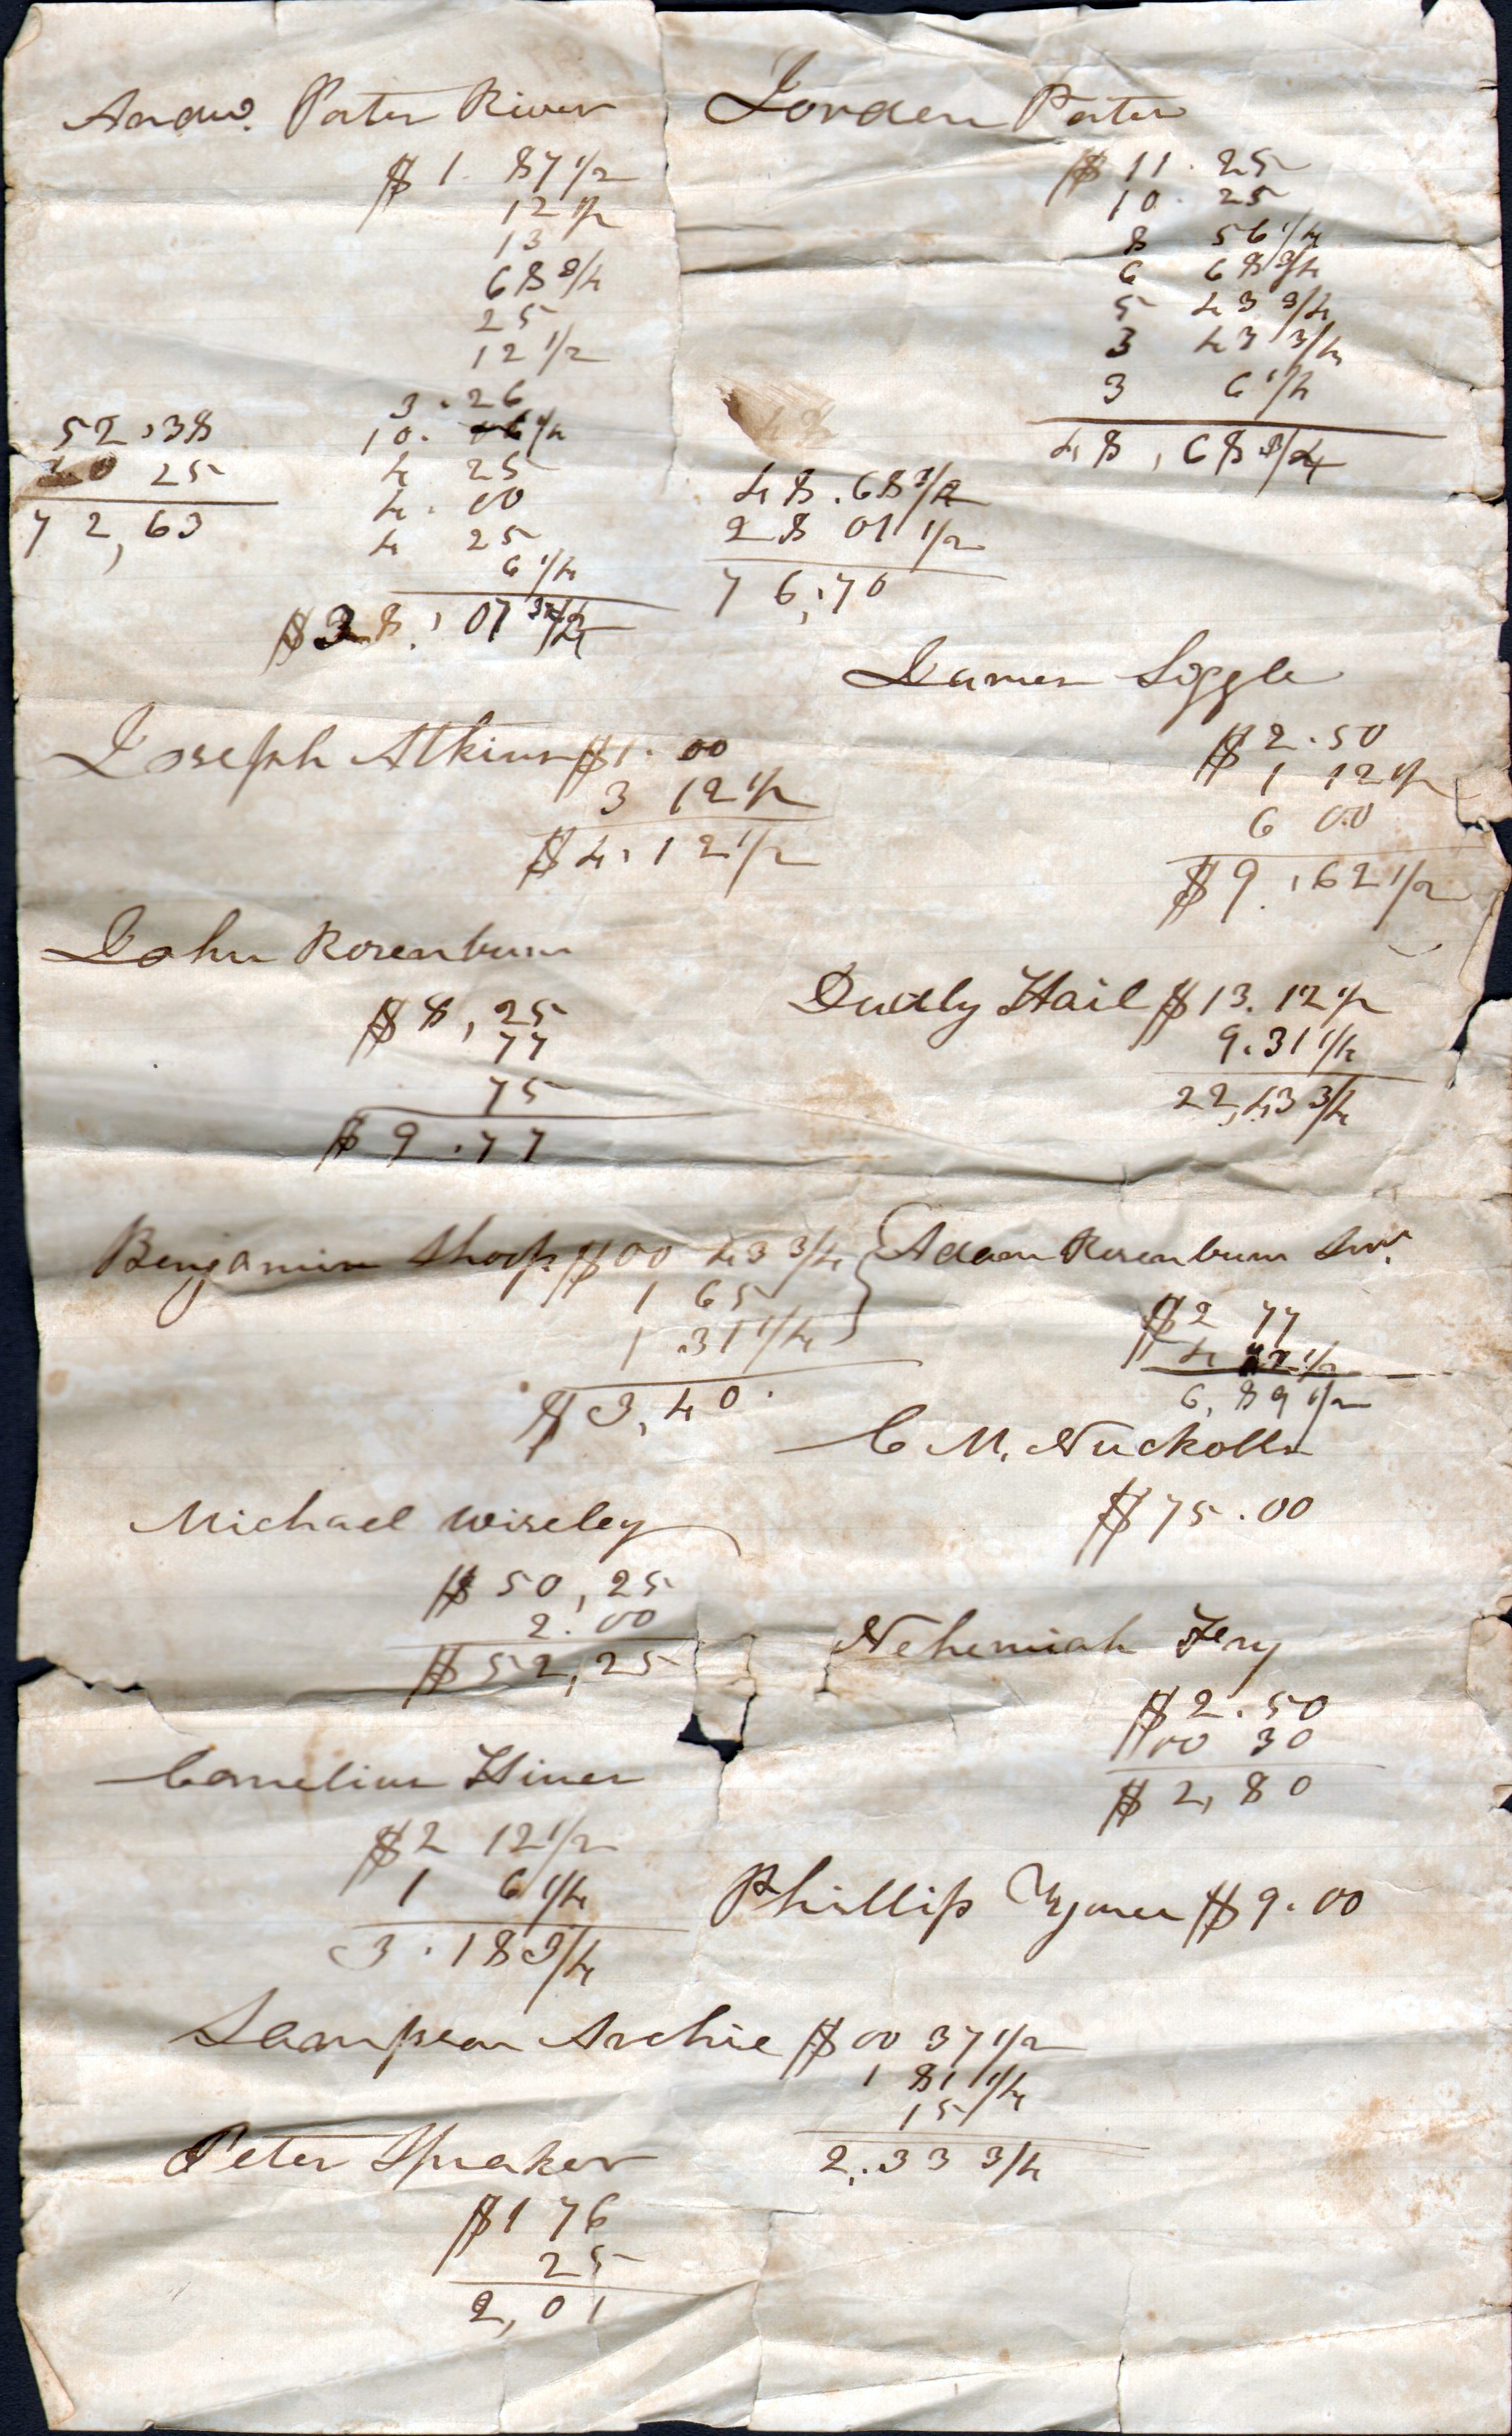 Andw. Porter River
$ 1. 87 1/2
12 1/2
13
68 3/4
25
12 1/2
3.26
10. 6 1/4
4 25
4. 00
4 25
6 1/4
$ 28. 07 1/2
52.38
20 25
72,63
Jorden Porter
$ 11. 25
10. 25
8 56 1/4
6 68 3/4
5 43 3/4
3 43 3/4
3 6 1/4
48, 68 3/4
48.68 3/4
28 01 1/2
76,70
James Siggle
$ 2.50
1 12 1/2
6 00
$ 9.62 1/2
Joseph Atkins $1. 00
3 12 1/2
$ 4, 12 1/2
John Rosenbum
$ 8, 25
77
75
$ 9.77
Dudly Hail $ 13. 12 1/2
9.31 1/4
22,43 3/4
Benjamin Shock $ 00 43 3/4
1 65
1 31 1/4
$ 3, 40
Adam Rosenbum Snr.
$ 2 77
4 12 1/2
6, 89 1/2
C M. Nuckolls
$ 75.00
Michael Wiseley
$ 50, 25
2. 00
$ 52, 25
Nehemiah Fry
$ 2. 50
00 30
$ 2, 80
Cornelius Hines
$ 2 12 1/2
1 6 1/4
3. 18 3/4
Phillip $ 9. 00
Sampson Archie $ 00 37 1/2
1 81 1/4
15
2.33 3/4
Peter Spraker
$ 1 76
25
2, 01